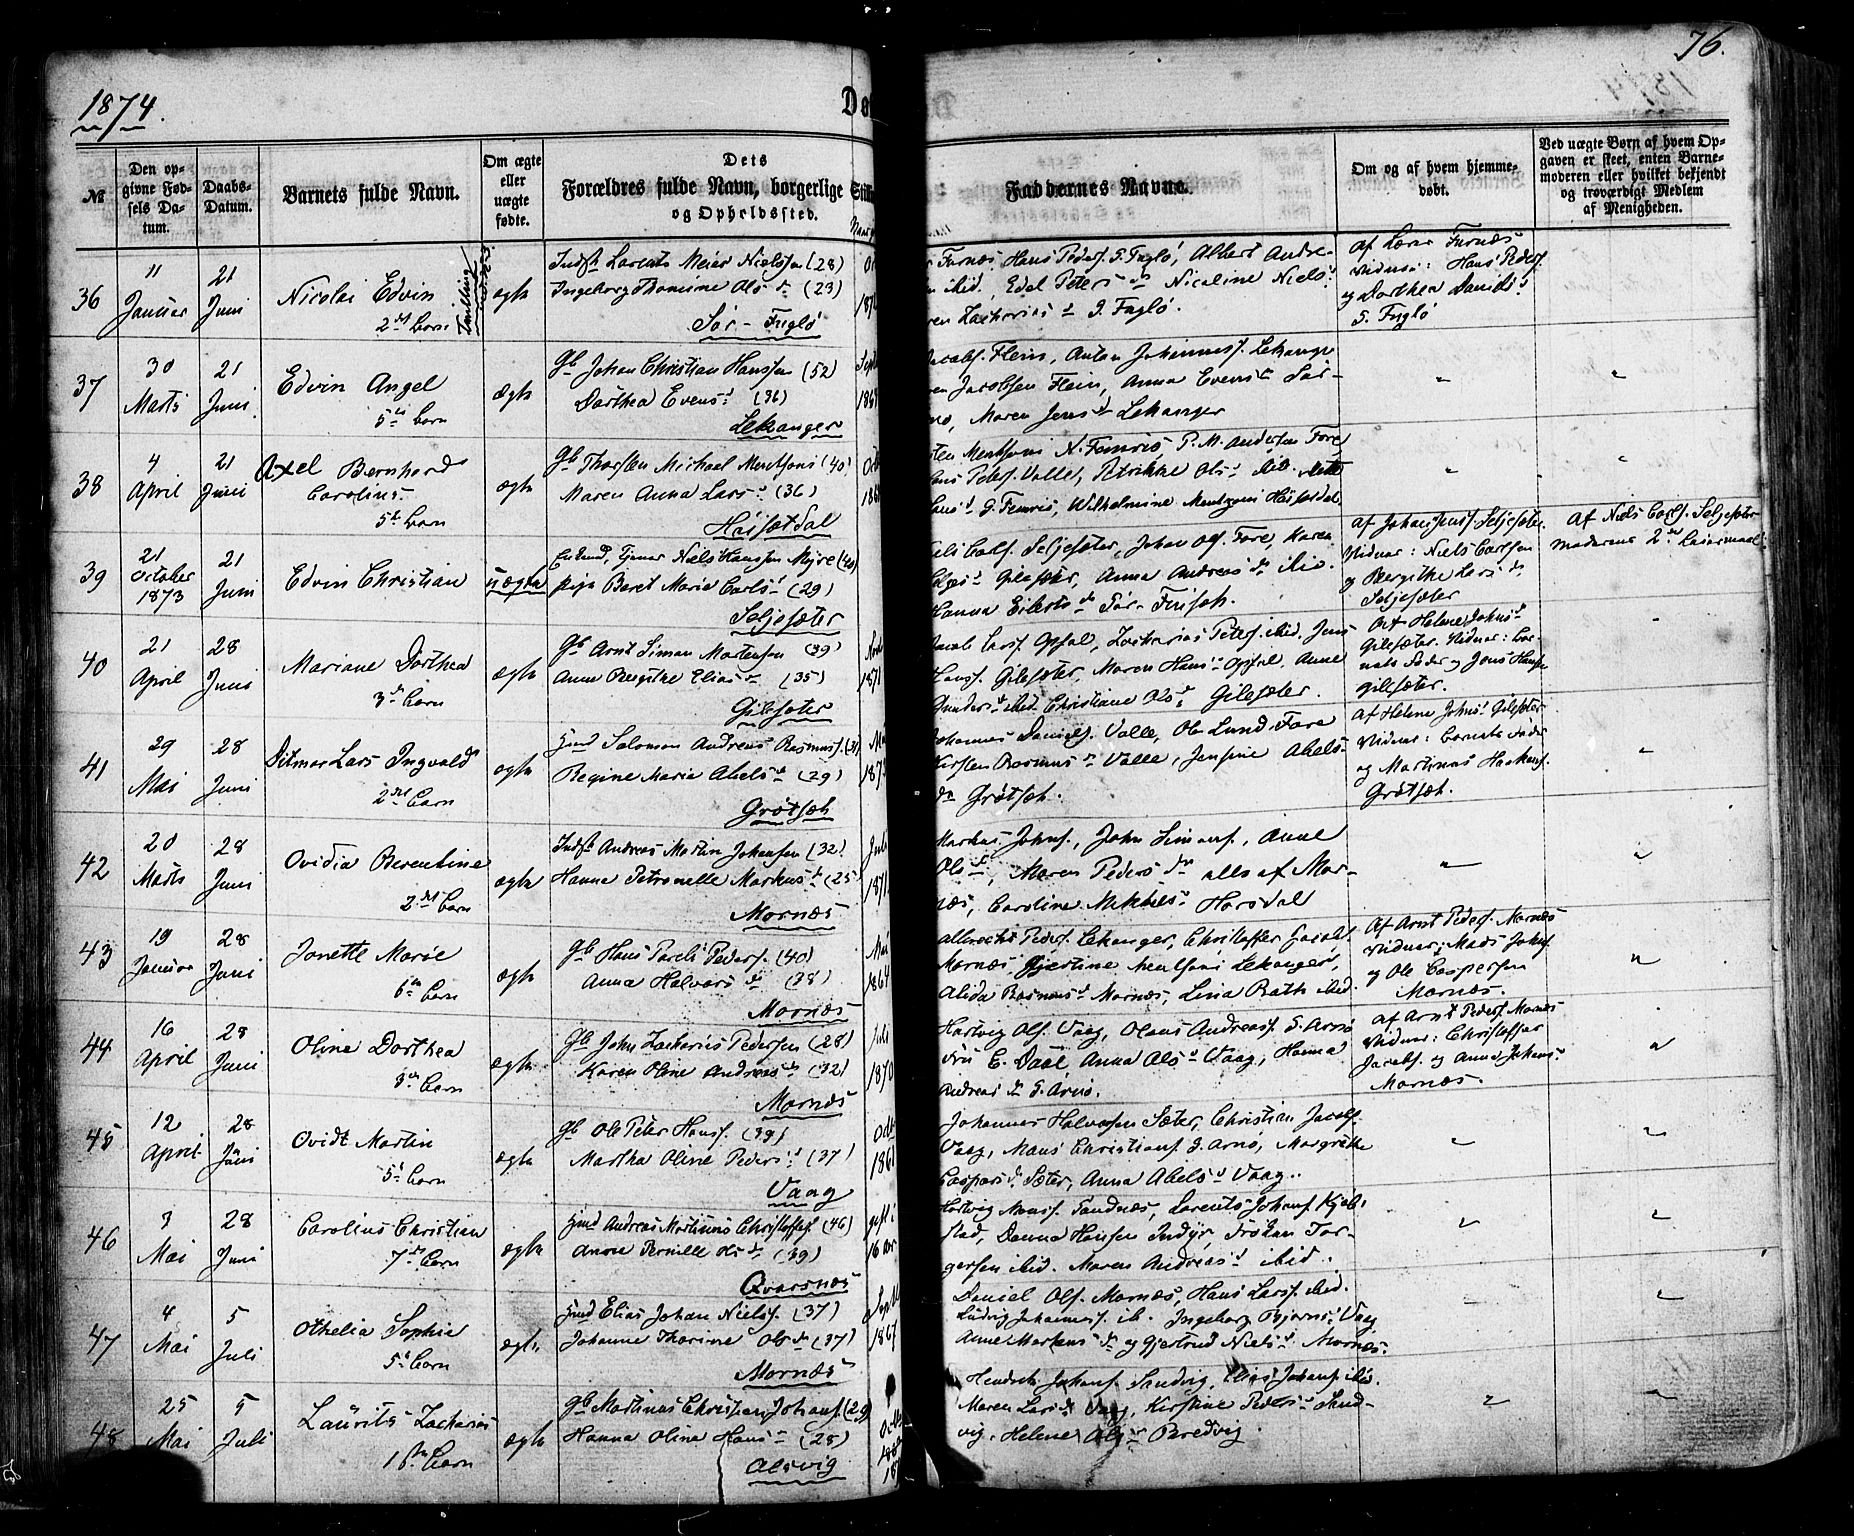 76.
1874.
Dø
№
Den op-
givne Fød-
sels Da-
tum.
Daabs-
Datum.
Barnets fulde Navn.
Om ægte
eller
uægte
fødte.
Dets
Forældres fulde Navn, borgerlige Still
og Opholdssted.
Faddernes Navne.
Om og af hvem hjemme-
døbt.
Ved uægte Børn af hvem Op-
gaven er skeet, enten Barne-
moderen eller hvilket bekjendt
og troværdigt Medlem
af Menigheden.
36
11 Januar
21 Juni
Nicolai Edvin
2det Barn
Tvilling
ægte
Indst Lorents Meier Nielsen (28)
Ingeborg Thomine Ols dr (23)
Sør-Fuglø
Furnæs, Hans Peders. S. Fuglø, Albert Andre-
ibid, Edel Peters Nicoline Niels
Zacharias d S. Fuglø.
af Lærer Furnæs
Vidner: Hans Peders.
og Dorthea Daniels
S. Fuglø
37
30 Marts
21 Juni
Edvin Angel
5te Barn
ægte
Gb Johan Christian Hanssen (52)
Dorthea Evens d (36)
Lekanger
Jacobs. Flein, Anton Johannes. Lekanger
Jacobsen Flein, Anna Evens dr Sør-
Maren Jens d Lekanger
"
"
38
4 April
21 Juni
Axel Bernhard
Carolius
5te Barn
ægte
Gb Thorsten Michael Mentsoni (40)
Maren Anna Lars d (36)
Høisetdal
Mentsoni N. Femris, P. M. Andersen Fore
Peders. Valle, Petrikke Ols d ibid. Mette
S. Femris, Wilhelmine Mentzoni Høisetdal
"
"
39
21 October 1873
21 Juni
Edvin Christian
uægte
Enkmd, Tjener Niels Hanssen Myre (40)
Pige Beret Marie Carls d (29)
Seljesæter
Niels Carls. Seljesæter, Johan Ols. Fore, Karen
Gilesæter, Anna Andreas dr ibid.
Hanna Eilerts dr Sør-Finseth.
af Johan Jens. Seljesæter.
Vidner: Niels Carlsen
og Bergithe Lars dr
Seljesæter
Af Niels Carls. Seljesæter
moderens 2det Leiermaal
40
21 April
28 Juni
Mariane Dorthea
3die Barn
ægte
Gb Arnt Simon Mortensen (39)
Anne Bergithe Elias dr (35)
Gilesæter
Jacob Lars. Opsal, Zacharias Peters. ibid, Jens
Hans. Gilesæter, Maren Hans d Opsal, Anne
Gunders d ibid. Christiane Ols d Gilesæter.
Af Helene Johns d
Gilesæter. Vidner: Bar-
nets Fader og Jens Hanss.
Gilesæter.
"
41
29 Mai
28 Juni
Ditmar Lars Ingvald
2det Barn
ægte
Hmd Salomon Andreas Rasmus. (28)
Regine Marie Abels d (29)
Grøtseth
Johannes Daniels. Valle, Ole Lund Fore
Kirsten Rasmus dr Valle, Jensine Abels-
dr Grøtseth.
Af Helene Johns d Gilesæter
Vidner: Barnets Fader
og Martinus Haakens.
Grøtseth.
"
42
20 Marts
28 Juni
Ovidia Berentine
2det Barn
ægte
Indst Andreas Martin Johansen (32)
Hanna Petronelle Markus d (25)
Mornæs
Markus Johns., John Simons., Anne
Ols d, Maren Peders dr alle af Mor-
næs, Caroline Mikkels d Horsdal
"
"
43
19 Januar
28 Juni
Janette Marie
6te Barn
ægte
Gb Hans Pareli Peders. (40)
Anna Halvors dr (38)
Mornæs
Albrecht Peders. Lekanger, Christoffer Jacobs.
Mornæs, Gjertine Mentsoni Lekanger,
Alida Rasmus d Mornæs, Lina Rath ibid.
Af Arnt Peders. Mornæs
Vidner: Mads Johns.
og Ole Caspersen
Mornæs.
"
44
16 April
28 Juni
Oline Dorthea
3die Barn
ægte
Gb John Zacharias Pedersen (28)
Karen Oline Andreas dr (32)
Mornæs
1870
Hartvig Ols. Vaag, Olaus Andreas. S. Arnø
Fru E. Daal Anna Ols d Vaag, Hanna
Andreas dr S. Arnø.
af Arnt Peders. Mornæs
Vidner: Christoffer
Jacobs. og Anna Johans d
Mornæs.
"
45
12 April
28 Juni
Ovidt Martin
5te Barn
ægte
Gb Ole Peter Hanss. (39)
Martha Oline Peders d (37)
Vaag
Johannes Halvorsen Sæter, Christian Jacobs.
Vaag, Mons Christians. S. Arnø, Margrethe
Caspers dr Sæter, Anna Abels d Vaag.
"
"
46
3 Mai
28 Juni
Carolius Christian
7de Barn
ægte
Hmd Andreas Martinus Christoffers. (46)
Anne Pernille Ols dr (39)
Qvarsnæs
gift i
16 Aar
Hartvig Monss. Sandnæs, Lorents Johans. Kjel-
stad, Danna Hansen Indyr, Frøken Tor-
gersen ibid. Maren Andreas d ibid.
"
"
47
4 Mai
5 Juli
Othelia Sophie
5te Barn
ægte
Hmd Elias Johan Niels. (37)
Johanne Thorine Ols dr (37)
Mornæs
Septb
1867
Daniel Ols. Mornæs, Hans Lars. ibid.
Ludvig Johannes. ib. Ingeborg Bjørns d Vaag
Anne Markus dr og Gjertrud Niels d Mornæs.
"
"
48
25 Mai
5 Juli
Laurits Zacharias
1ste Barn
ægte
Gb Martinus Christian Johans. (29)
Hanna Oline Hans d (28)
Alsvig
Hendrik Johans. Sandvig, Elias Johans. ibid.
Maren Lars dr Vaag, Kirstine Peders d Sand-
vig, Helene Ols d Bredvig.
"
"